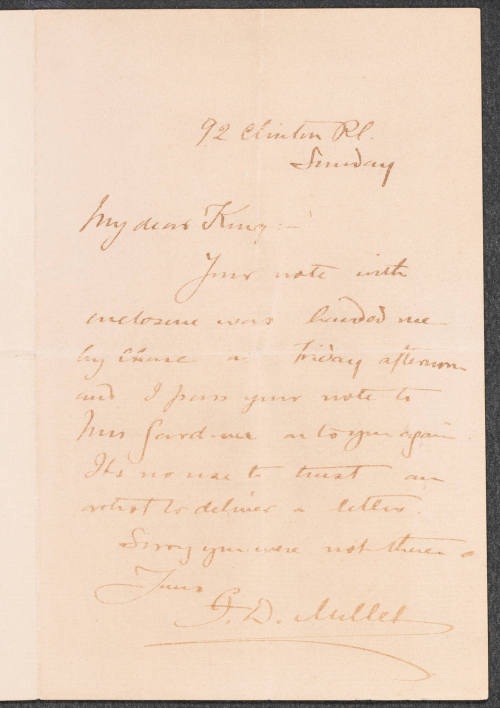 92 Clinton Pl.
Sunday
My dear King:-
Your note with
enclosure was handed me
by Chase on Friday afternoon
and I pass your note to
Mrs Gardiner on to you again
Its no use to trust an
artist to deliver a letter.
Sorry you were not there
Yours
F. D. Millet